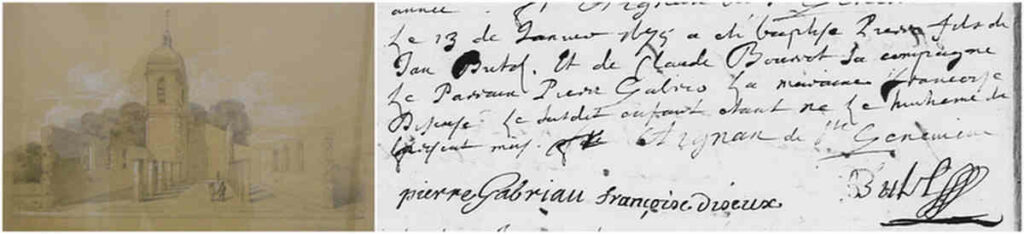 année.
Le 13 de Janvier 1675 a eté baptise Pierre fils de
Jan Butel. Et de Claude Bourot Sa compagne
Le Parrain Pierre Gabrio La maraine francoise
Disense Le susdit enfant etant ne Le huitieme de
present mois. Aignan de Ste Genevieve
pierre Gabriau françoise dioeux Butel